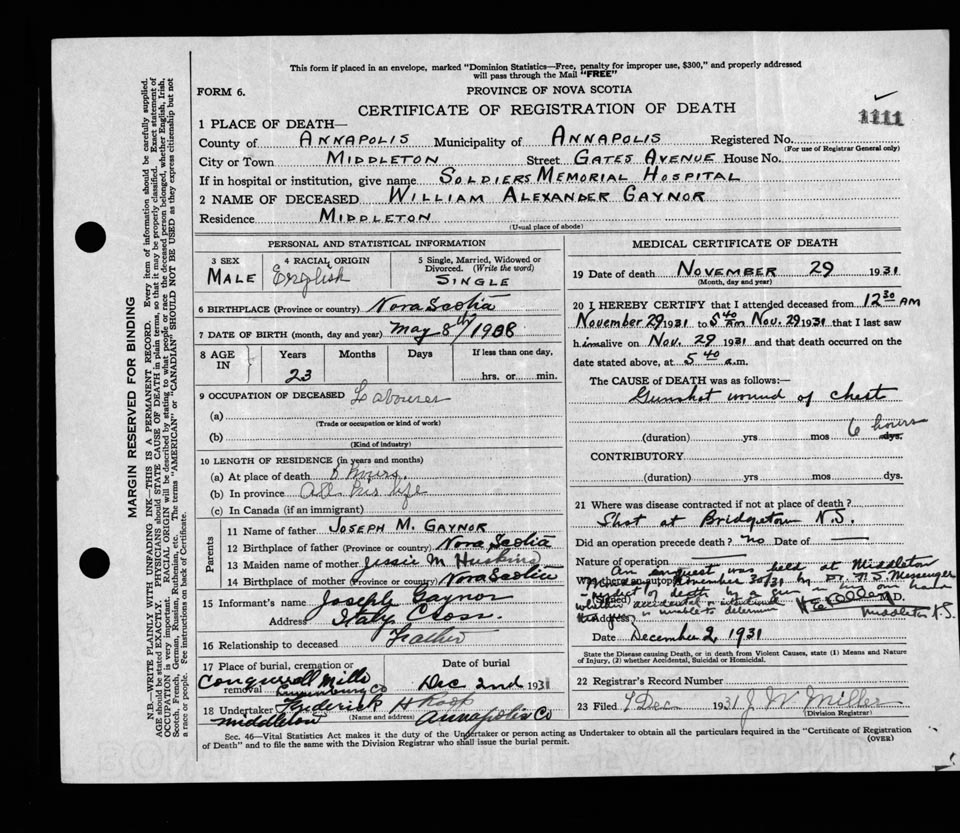 This form if placed in an envelope, marked "Dominion Statistics—Free, penalty for improper use, $300," and properly addressed
will pass through the Mail "FREE"
FORM 6.
PROVINCE OF NOVA SCOTIA
CERTIFICATE OF REGISTRATION OF DEATH
1111
1 PLACE OF DEATH—
County of ANNAPOLIS Municipality of ANNAPOLIS Registered No.
(For use of Registrar General only)
City or Town MIDDLETON Street GATES AVENUE House No.
If in hospital or institution, give name SOLDIERS MEMORIAL HOSPITAL
2 NAME OF DECEASED WILLIAM ALEXANDER GAYNOR
Residence MIDDLETON
(Usual place of abode)
PERSONAL AND STATISTICAL INFORMATION
3 SEX MALE
4 RACIAL ORIGIN English
5 Single, Married, Widowed or
Divorced. (Write the word)
SINGLE
6 BIRTHPLACE (Province or country) Nova Scotia
7 DATE OF BIRTH (month, day and year) May 8th 1908
8 AGE IN
Years Months Days If less than one day,
23 hrs. or min.
9 OCCUPATION OF DECEASED Labourer
(a)
(Trade or occupation or kind of work)
(b)
(Kind of industry)
10 LENGTH OF RESIDENCE (in years and months)
(a) At place of death hours
(b) In province All his life
(c) In Canada (if an immigrant)
Parents
11 Name of father JOSEPH M. GAYNOR
12 Birthplace of father (Province or country) Nova Scotia
13 Maiden name of mother Jessie M
14 Birthplace of mother (Province or country) Nova Scotia
15 Informant's name Joseph Gaynor
Address Italy Cross
16 Relationship to deceased Father
17 Place of burial, cremation or removal
Mills
Lunenburg Co
Date of burial
Dec 2nd 1931
18 Undertaker Frederick H Roop
(Name and address)
Middleton Annapolis Co
MEDICAL CERTIFICATE OF DEATH
19 Date of death NOVEMBER 29 1931
(Month, day and year)
20 I HEREBY CERTIFY that I attended deceased from 12 30 AM
November 29 1931 to 5 40 AM Nov. 29 1931 that I last saw
him alive on Nov. 29 1931 and that death occurred on the
date stated above, at 5 40 a.m.
The CAUSE OF DEATH was as follows:—
Gunshot wound of chest
(duration) yrs mos 6 hours dys.
CONTRIBUTORY
(duration) yrs. mos. dys.
21 Where was disease contracted if not at place of death?
Shot at Bridgetown N.S.
Did an operation precede death? No Date of —
Nature of operation —
An enquest was held at Middleton
November 30/31 by Dr. Messenger
of death by a gun in his own hands
whether accidental or intentional
is unable to determine
M.D.
Middleton N.S.
Date December 2, 1931
State the Disease causing Death, or in death from Violent Causes, state (1) Means and Nature
of Injury, (2) whether Accidental, Suicidal or Homicidal.
22 Record Number
23 Filed 7 Dec 1931 J. W. Miller
(Division Registrar)
Sec. 46—Vital Statistics Act makes it the duty of the Undertaker or person acting as Undertaker to obtain all the particulars required in the "Certificate of Registration
of Death" and to file the same with the Division Registrar who shall issue the burial permit.
(OVER)
MARGIN RESERVED FOR BINDING
N.B.—WRITE PLAINLY WITH UNFADING INK—THIS IS A PERMANENT RECORD. Every item of information should be carefully supplied.
AGE should be stated EXACTLY. PHYSICIANS should STATE CAUSE OF DEATH in plain terms, so that it may be properly classified. Exact statement of
OCCUPATION is very important. RACIAL ORIGIN will be described by stating to what people or race the deceased person belonged, whether English, Irish,
Scotch, French, German, Russian, Ruthenian, etc. The terms "AMERICAN" or "CANADIAN" SHOULD NOT BE USED as they express citizenship but not
a race or people. Fee instructions on back of Certificate.